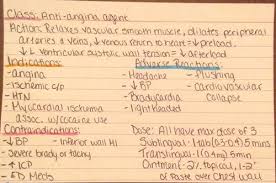 Class: Anti-angina agent
Action: Relaxes vascular smooth muscle, dilates peripheral
arteries & veins, ↓ venous return to heart = ↓ preload,
↓ L ventricular systolic wall tension = ↓ afterload
Indications:
-angina
-ischemic c/o
-HTN
-Myocardial ischemia
assoc. w/cocaine use
Adverse Reactions:
-Headache
-↓BP
-Bradycardia
-lightheaded
-Flushing
-Cardiovascular
collapse
Contraindications:
-↓BP
-Inferior wall MI
-Severe brady/tachy
-↑ICP
-ED Meds
Dose: All have max dose of 3
Sublingual: 1 tab (0.3-0.4) 5mins
Translingual: 1 (0.4mg) 5min
Ointment: 2% topical, 1-2"
of paste over Chest wall